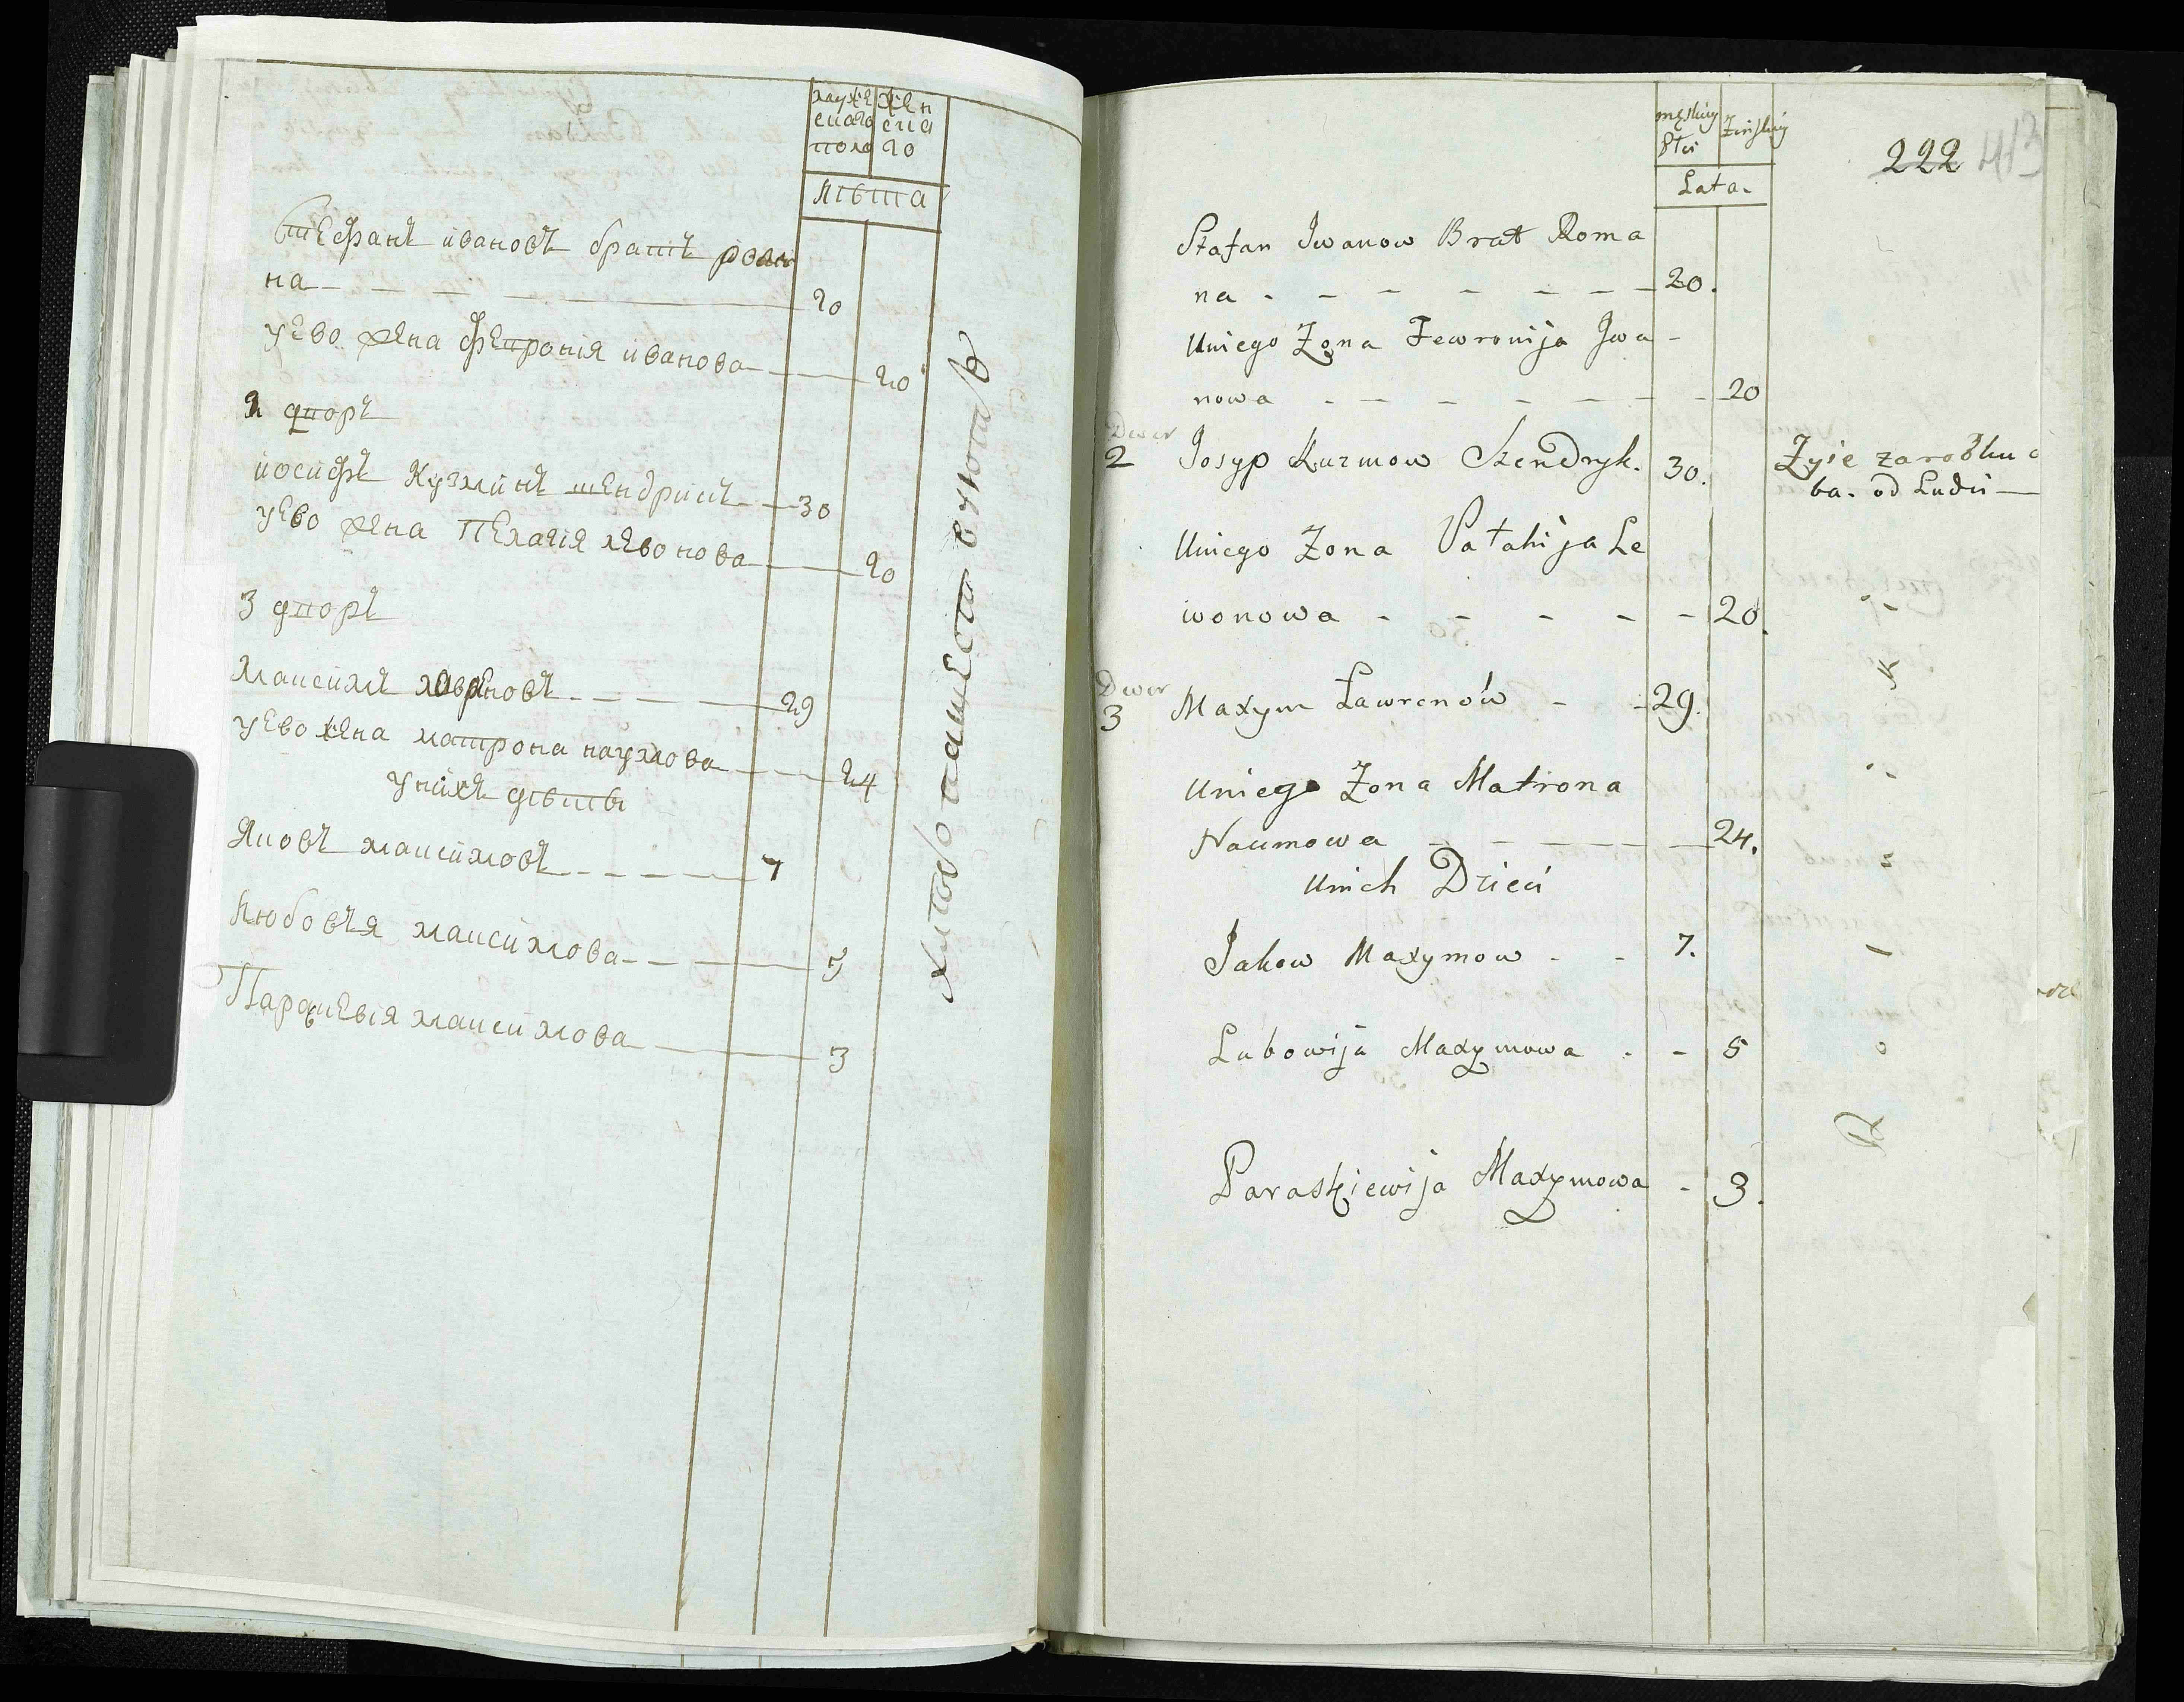 муже жен
скаго ска
пола го
лѣта
Стефанъ ивановъ братъ рома
на 20
уево жена февронія иванова 20
2 дворъ
иосифъ Кузминъ шендрикъ 30
уево жена Пелагія левонова 20
3 дворъ
максимъ лавриновъ 29
уево жена матрона наумова 24
унихъ дѣти
Яковъ максимовъ 7
Любовъя максимова 5
Параскевія максимова 3
męskiey Żeńskiey
Płci
Lata.
222 413
Stafan Iwanow Brat Roma
na - - - - - - - 20.
Uniego Zona Fewronija Iwa -
nowa - - - - - - - 20
Dwor
2 Josyp Kuzmow Szendryk. 30. Zyie zarobku
ba. od Ludzi —
Uniego Zona Pałahija Le
wonowa - - - - - 20.
Dwor
3 Maxym Ławrenow - - 29.
Uniego Zona Matrona
Naumowa - - - - - 24.
Unich Dzieci
Jakow Maxymow - - 7.
Lubowija Maxymowa - - 5
Paraskiewija Maxymowa - 3.